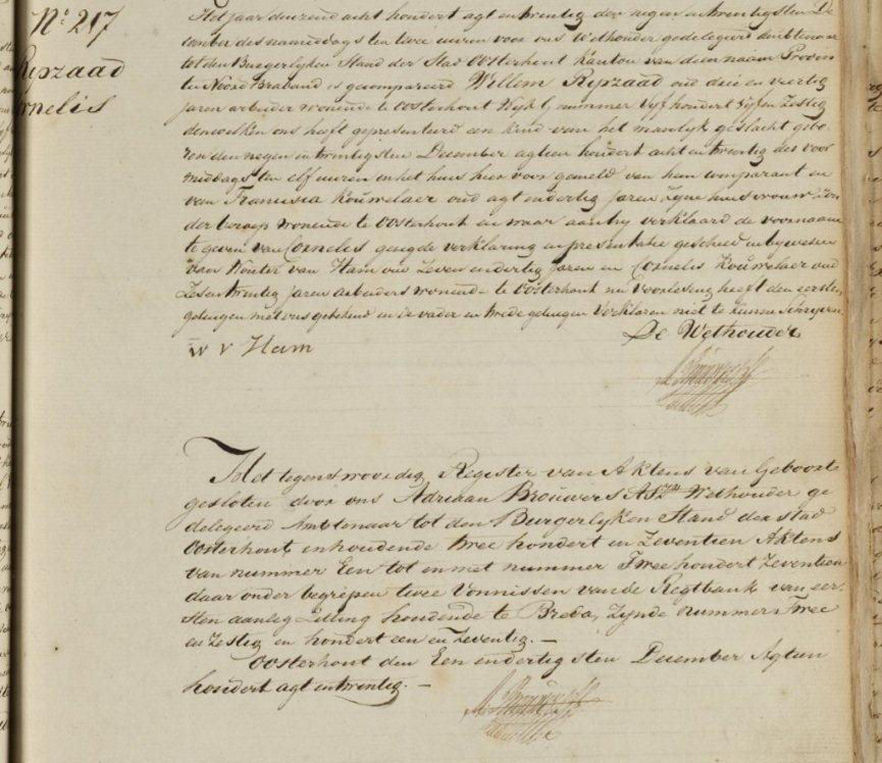 N:o 217
Rypzaad
Cornelis
Het jaar duizend acht hondert agt en twintig den negen en twintigsten De
cember des namiddags ten twee uuren voor ons Wethouder gedelegeerd ambtenaar
tot den Burgerlyken Stand der Stad Oosterhout kanton van dien naam Provin
tie Noord Braband is gecompareerd Willem Rypzaad oud drie en veertig
jaren arbeider wonende te Oosterhout Wyk G nummer vyf hondert vyf en Zestig
denwelken ons heeft gepresenteerd een kind van het manlyk geslacht gebo
ren den negen en twintigsten December agteen hondert acht en twintig des voor
middags ten elf uuren in het huis hier voor gemeld van hem comparant en
van Francisca Kouwelaer oud agt en dertig jaren Zyne huisvrouw Zon
der beroep wonende te Oosterhout en waar aan hy verklaard de voornaam
te geven van Cornelis geweegde verklaring en presentatie geschied in bywezen
van Wouter van Ham oud Zeven en dertig jaren en Cornelis Kouwelaer oud
Zes en twintig jaren arbeiders wonende te Oosterhout na voorlezing heeft den eersten
getuigen met ons getekend en de vader en twede getuigen verklaren niet te kunnen Schryven
De Wethouder
W V Ham
Het tegenswoordig Register van Aktens van Geboorte
gesloten door ons Adriaan Brouwers ASzn Wethouder ge
delegeerd Ambtenaar tot den Burgerlyken Stand der stad
Oosterhout inhoudende twee hondert en Zeventien Aktens
van nummer Een tot en met nummer Twee hondert Zeventien
daar onder begrepen twee Vonnissen van de Regtbank van eer
sten aanleg Zitting houdende te Breda, Zynde nummers Twee
en Zestig en hondert een en Zeventig. —
Oosterhout den Een en dertigsten December Agteen
hondert agt en twintig. —